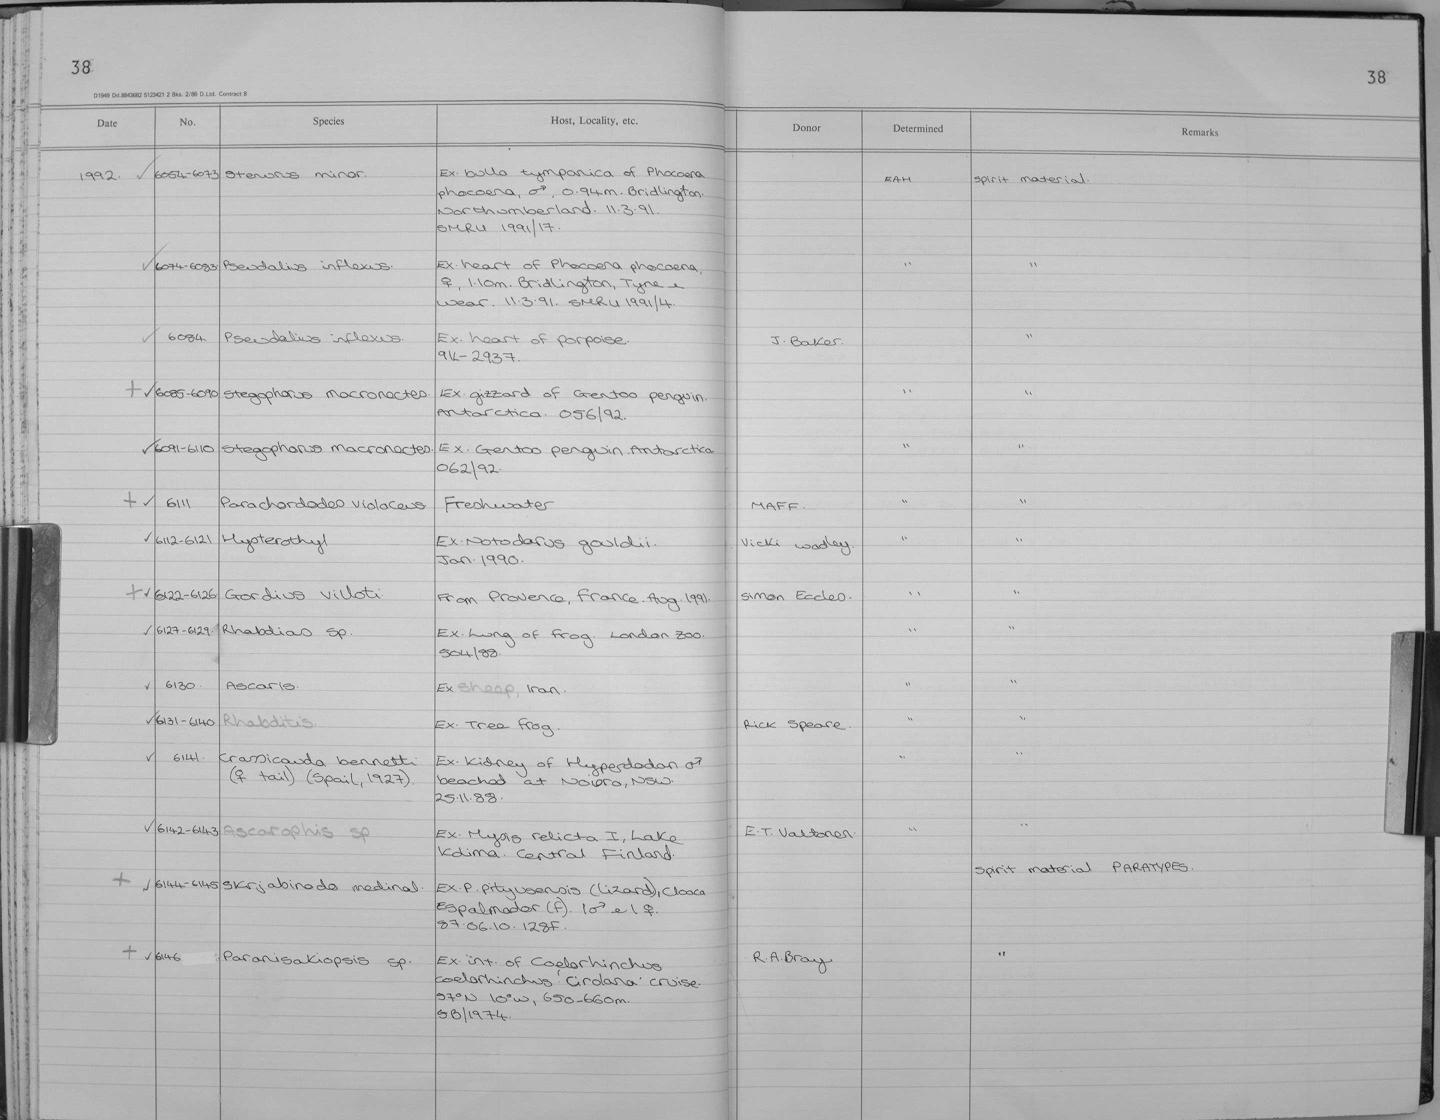 38
38
D1949 Dd.8843682 5123421 2 Bks. 2/86 D.Ltd. Contract 8
Date No. Species Host, Locality, etc. Donor Determined Remarks
1992. ✓ 6054-6073 Stenurus minor. Ex. bulla tympanica of Phocoena EAH spirit material.
phocoena, ♂, 0.94m. Bridlington.
Northumberland. 11.3.91.
SMRU 1991/17.
✓ 6074-6083 Pseudalius inflexus. Ex. heart of Phocoena phocoena, " "
♀, 1.10m. Bridlington, Tyne &
Wear. 11.3.91. SMRU 1991/4.
✓ 6084. Pseudalius inflexus. Ex. heart of porpoise. J. Baker. "
91L-2937.
+ ✓ 6085-6090 Stegophorus macronectes. Ex. gizzard of Gentoo penguin. " "
Antarctica. 056/92.
✓ 6091-6110 Stegophorus macronectes. Ex. Gentoo penguin. Antarctica " "
062/92.
+ ✓ 6111 Parachordodes violaceus Freshwater MAFF. " "
✓ 6112-6121 Hysterothyl Ex. Notodarus gouldii. Vicki Wadley. " "
Jan. 1990.
+ ✓ 6122-6126 Gordius villoti From Provence, France. Aug. 1991. Simon Eccles. " "
✓ 6127-6129 Rhabdias sp. Ex. Lung of frog. London Zoo. " "
504/88.
✓ 6130. Ascaris. Ex sheep, Iran. " "
✓ 6131-6140 Rhabditis. Ex. Tree frog. Rick Speare. " "
✓ 6141. Crassicauda bennetti Ex. Kidney of Hyperdodon ♂ " "
(♀ tail) (Spail, 1927). beached at , NSW.
25.11.88.
✓ 6142-6143 Ascarophis sp Ex. Mysis relicta I, Lake E.T. Valtonen. " "
Kdima. Central Finland.
spirit material PARATYPES.
+ ✓ 6144-6145 Skrjabinodo medinal. Ex. P. pityusensis (lizard), Cloaca
Espalmador (F). 1♂ & 1♀.
87.06.10. 128F.
+ ✓ 6146 Paranisakiopsis sp. Ex. int. of Coelorhinchus R.A. Bray "
coelorhinchus 'Cirolana' cruise.
57°N 10°W, 650-660m.
SB/1974.